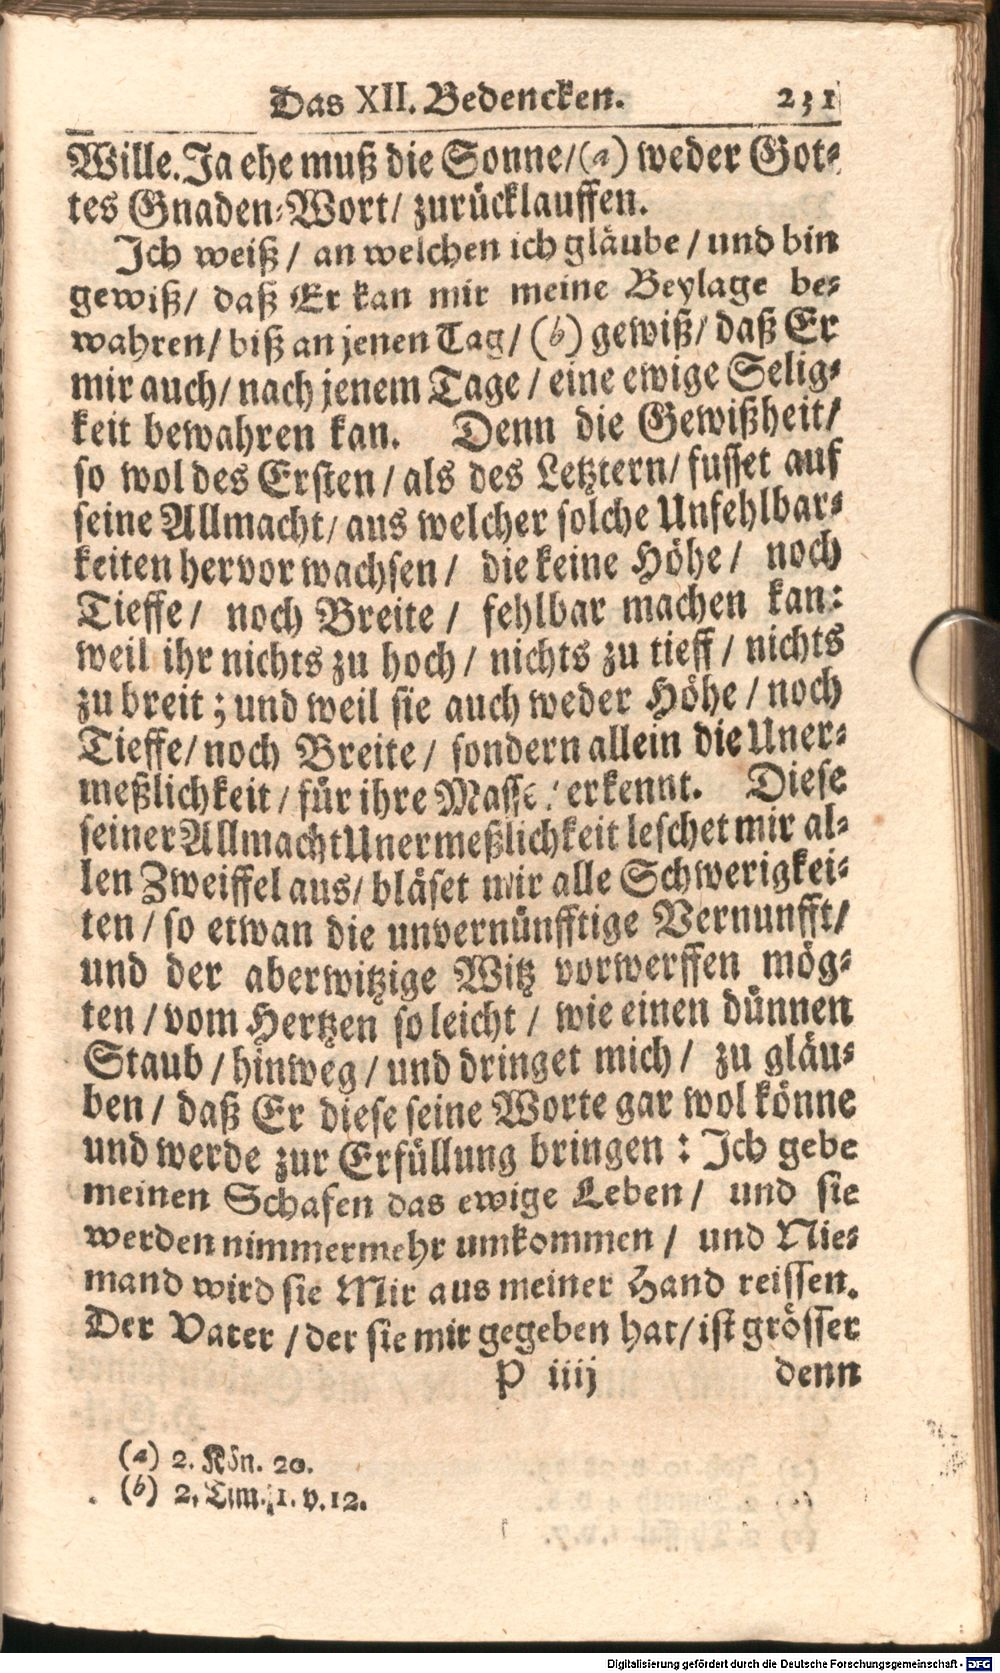 Das XII. Bedencken. 231
Wille. Ja ehe muß die Sonne/(a) weder Got-
tes Gnaden-Wort/ zurücklauffen.
Ich weiß/ an welchen ich gläube/ und bin
gewiß/ daß Er kan mir meine Beylage be-
wahren/ biß an jenen Tag/ (b) gewiß/ daß Er
mir auch/ nach jenem Tage/ eine ewige Selig-
keit bewahren kan. Denn die Gewißheit/
so wol des Ersten/ als des Letztern/ fusset auf
seine Allmacht/ aus welcher solche Unfehlbar-
keiten hervor wachsen/ die keine Höhe/ noch
Tieffe/ noch Breite/ fehlbar machen kan:
weil ihr nichts zu hoch/ nichts zu tieff/ nichts
zu breit; und weil sie auch weder Höhe/ noch
Tieffe/ noch Breite/ sondern allein die Uner-
meßlichkeit/ für ihre Masse/ erkennt. Diese
seiner Allmacht Unermeßlichkeit leschet mir al-
len Zweiffel aus/ bläset mir alle Schwerigkei-
ten/ so etwan die unvernünfftige Vernunfft/
und der aberwitzige Witz vorwerffen mög-
ten/ vom Hertzen so leicht/ wie einen dünnen
Staub/ hinweg/ und dringet mich/ zu gläu-
ben/ daß Er diese seine Worte gar wol könne
und werde zur Erfüllung bringen: Ich gebe
meinen Schafen das ewige Leben/ und sie
werden nimmermehr umkommen/ und Nie-
mand wird sie Mir aus meiner Hand reissen.
Der Vater/ der sie mir gegeben hat/ ist grösser
P iiij denn
(a) 2. Kön. 20.
(b) 2. Tim. 1. v. 12.
Digitalisierung gefördert durch die Deutsche Forschungsgemeinschaft - DFG